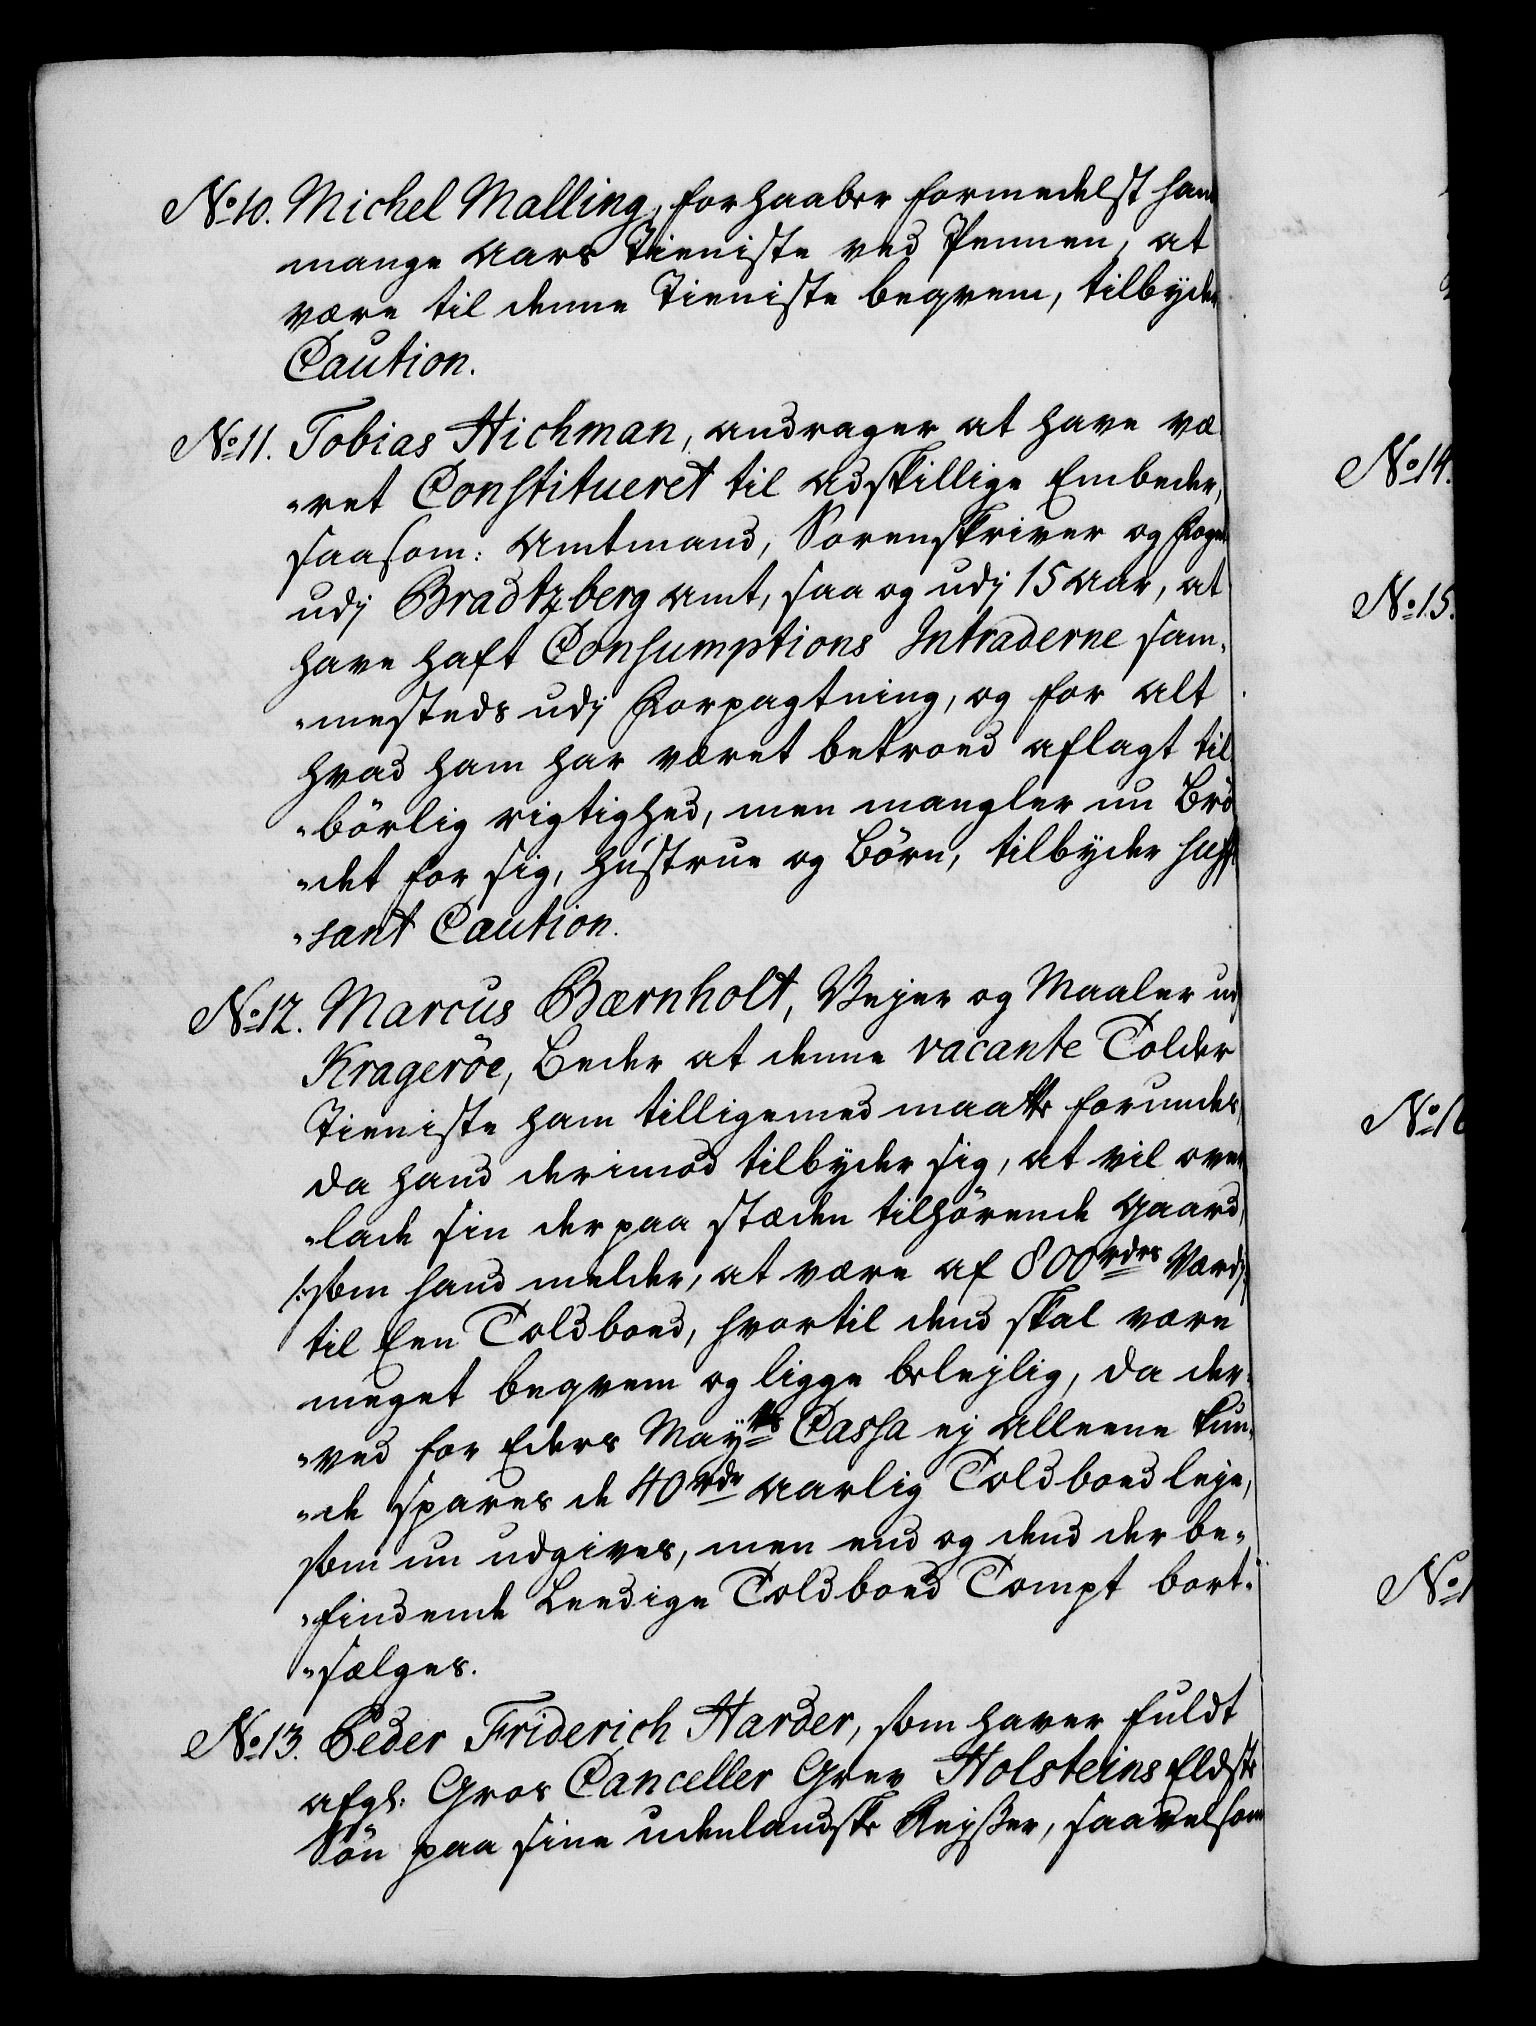 No 10. Michel Malling, forhaaber formedelst hans
mange Aars Tieniste ved Pennen, at
være til denne Tieniste beqvem, tilbyder
Caution.
No 11. Tobias Hichman, andrager at have væ
„ret Constitueret til Adskillige Embeder,
saasom: Amtmand, Sorenskriver og Foget
udj Bradtzberg Amt, saa og udj 15 Aar, at
have haft Consumptions Intraderne sam„
„mesteds udj Forpagtning, og for alt
hvad ham har været betroed aflagt til
„börlig rigtighed, men mangler nu Brö
„det for sig, Hustrue og Börn, tilbyder suffi
„sant Caution.
No 12. Marcus Bærnholt, Vejer og Maaler udj
Krageröe, Beder at denne vacante Tolder
Tieniste ham tilligemed maatte forundes,
da hand derimod tilbyder sig, at vil over
„lade sin der paa stæden tilhörende Gaard,
/: som hand melder, at være af 800 rdrs Værdj :/
til Een Toldboed, hvortil dend skal være
meget beqvem og ligge belejlig, da der„
„ved for Eders Mayts Cassa ej Alleene kun„
„de spares de 40 rdr aarlig Toldboed leje,
som nu udgives, men end og dend der be„
„findende Leedige Toldboed Tompt bort„
„sælges.
No 13. Peder Friderich Harder, som haver fuldt
afgl: Gros Canceller Grev Holsteins Eldste
Sön paa sine udenlandske Rejsser, saavelsom
No 14.
No 15.
No 16
No 1